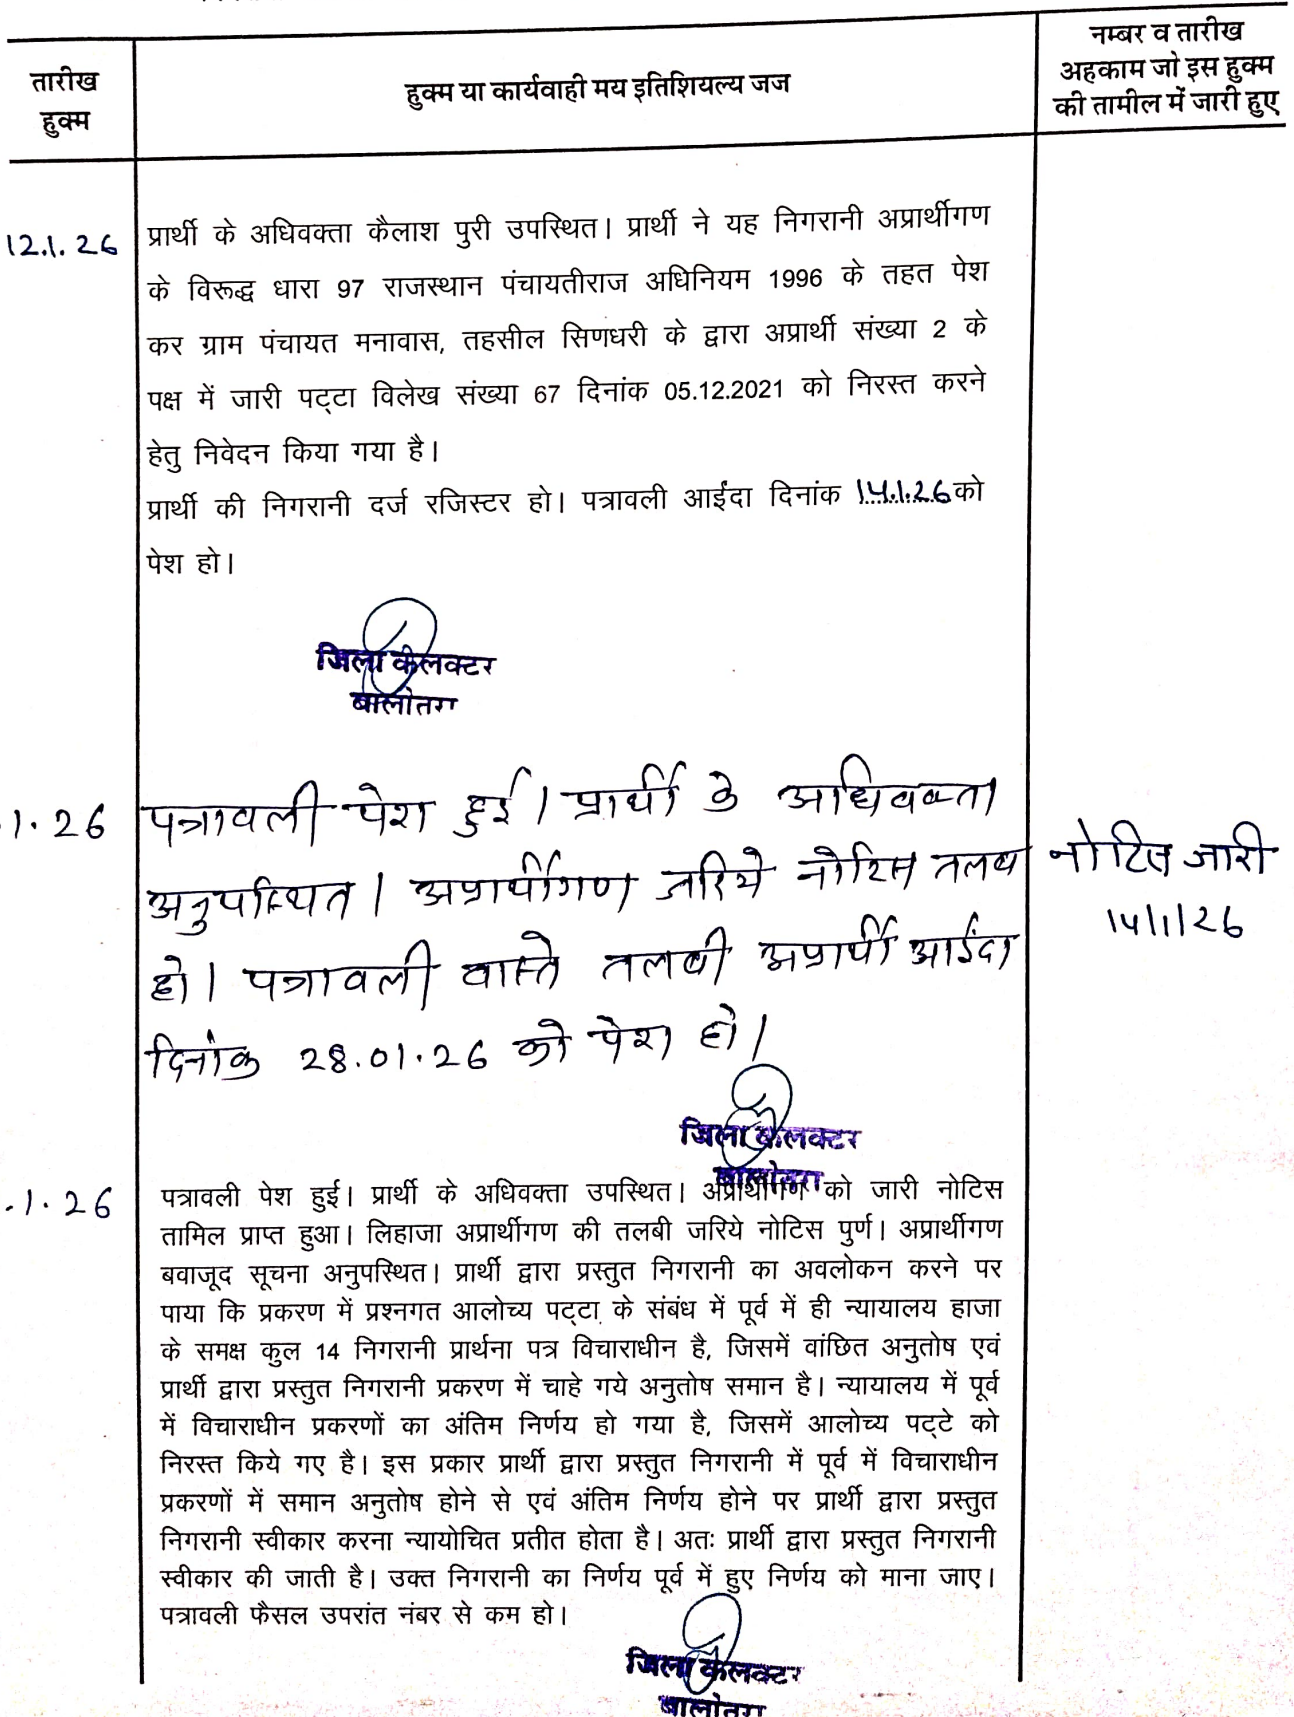 तारीख
हुक्म
हुक्म या कार्यवाही मय इतिशियल्य जज
नम्बर व तारीख
अहकाम जो इस हुक्म
की तामील में जारी हुए
12.1.26
प्रार्थी के अधिवक्ता कैलाश पुरी उपस्थित। प्रार्थी ने यह निगरानी अप्रार्थीगण
के विरूद्ध धारा 97 राजस्थान पंचायतीराज अधिनियम 1996 के तहत पेश
कर ग्राम पंचायत मनावास, तहसील सिणधरी के द्वारा अप्रार्थी संख्या 2 के
पक्ष में जारी पट्टा विलेख संख्या 67 दिनांक 05.12.2021 को निरस्त करने
हेतु निवेदन किया गया है।
प्रार्थी की निगरानी दर्ज रजिस्टर हो। पत्रावली आईंदा दिनांक 14.1.26 को
पेश हो।
जिला कलक्टर
बालोतरा
.1.26
पत्रावली पेश हुई। प्रार्थी के अधिवक्ता
अनुपस्थित। अप्रार्थीगण जरिये नोटिस तलब
हो। पत्रावली वास्ते तलबी अप्रार्थी आईंदा
दिनांक 28.01.26 को पेश हो।
नोटिस जारी
14/1/26
जिला कलक्टर
बालोतरा
.1.26
पत्रावली पेश हुई। प्रार्थी के अधिवक्ता उपस्थित। अप्रार्थीगण को जारी नोटिस
तामिल प्राप्त हुआ। लिहाजा अप्रार्थीगण की तलबी जरिये नोटिस पुर्ण। अप्रार्थीगण
बवाजूद सूचना अनुपस्थित। प्रार्थी द्वारा प्रस्तुत निगरानी का अवलोकन करने पर
पाया कि प्रकरण में प्रश्नगत आलोच्य पट्टा के संबंध में पूर्व में ही न्यायालय हाजा
के समक्ष कुल 14 निगरानी प्रार्थना पत्र विचाराधीन है, जिसमें वांछित अनुतोष एवं
प्रार्थी द्वारा प्रस्तुत निगरानी प्रकरण में चाहे गये अनुतोष समान है। न्यायालय में पूर्व
में विचाराधीन प्रकरणों का अंतिम निर्णय हो गया है, जिसमें आलोच्य पट्टे को
निरस्त किये गए है। इस प्रकार प्रार्थी द्वारा प्रस्तुत निगरानी में पूर्व में विचाराधीन
प्रकरणों में समान अनुतोष होने से एवं अंतिम निर्णय होने पर प्रार्थी द्वारा प्रस्तुत
निगरानी स्वीकार करना न्यायोचित प्रतीत होता है। अतः प्रार्थी द्वारा प्रस्तुत निगरानी
स्वीकार की जाती है। उक्त निगरानी का निर्णय पूर्व में हुए निर्णय को माना जाए।
पत्रावली फैसल उपरांत नंबर से कम हो।
जिला कलक्टर
बालोतरा